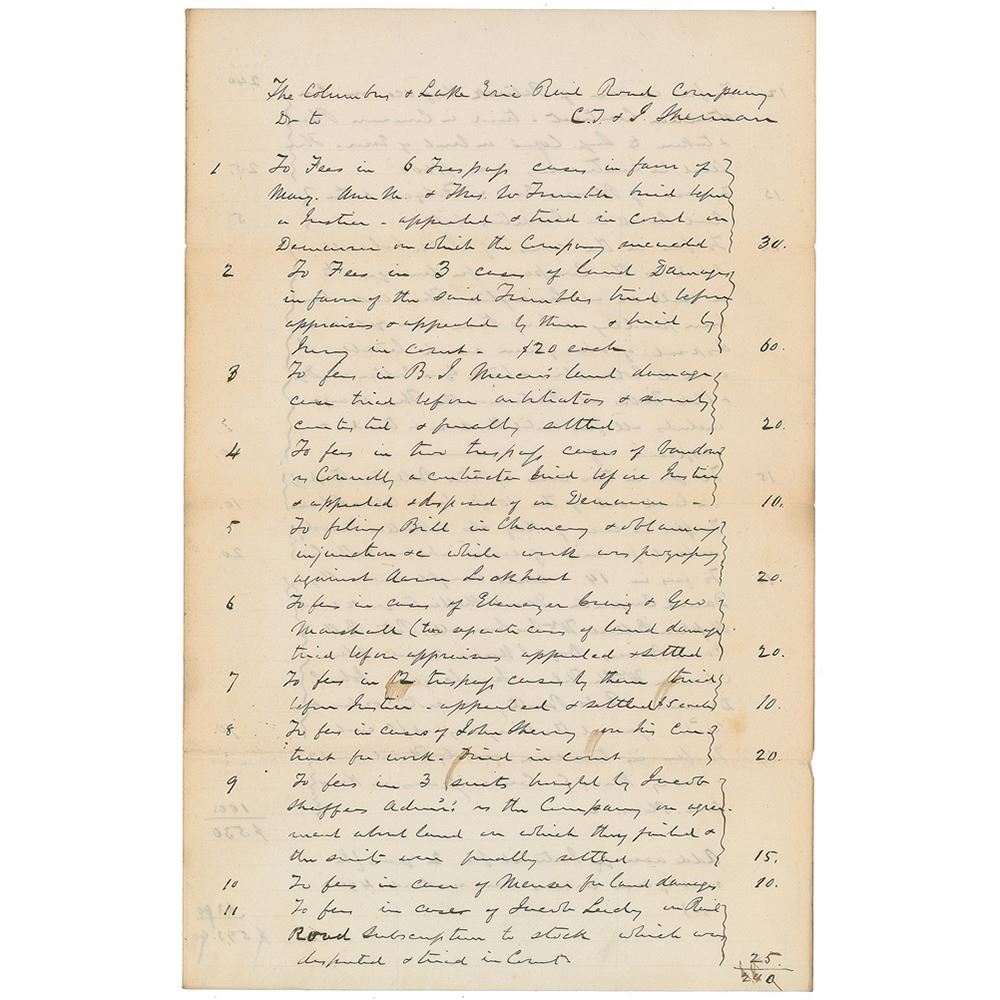 The Columbus & Lake Erie Rail Road Company
Dr to C.T. & J. Sherman
1 To Fees in 6 Trespass cases in favor of
Mary. Ann M. & Thos. W Trimble tried before
a Justice - appealed & tried in court on
Demurrer on which the Company succeeded 30.
2 To Fees in 3 cases of land Damages
in favor of the said Trimbles tried before
appraisers & appealed by them & tried by
Jury in court - $20 each 60.
3 To fees in B. J. Mercer's land damage
case tried before arbitrators & severely
contested & finally settled 20.
4 To fees in two trespass cases of
vs Connelly a contractor tried before Justice
& appealed & disposed of on Demurrer - 10.
5 To filing Bill in Chancery & obtaining
injunction &c while work was progressing
against Aaron Lockhart 20.
6 To fees in cases of Ebenezer Craig & Geo
Marshall (two separate cases of land damage
tried before appraisers appealed & settled 20.
7 To fees in 12 trespass cases by them tried
before Justice - appealed & settled $5 each 10.
8 To fees in cases of John Sherry on his con
tract for work - Tried in court 20.
9 To fees in 3 suits brought by Jacob
Shaffers Admr. vs the Company on agree-
ment about land on which they failed &
the suits were finally settled 15.
10 To fees in case of Menser for land damages 10.
11 To fees in cases of Jacob Leedy on Rail
Road subscription to stock which was
disputed & tried in Court. 25.
240